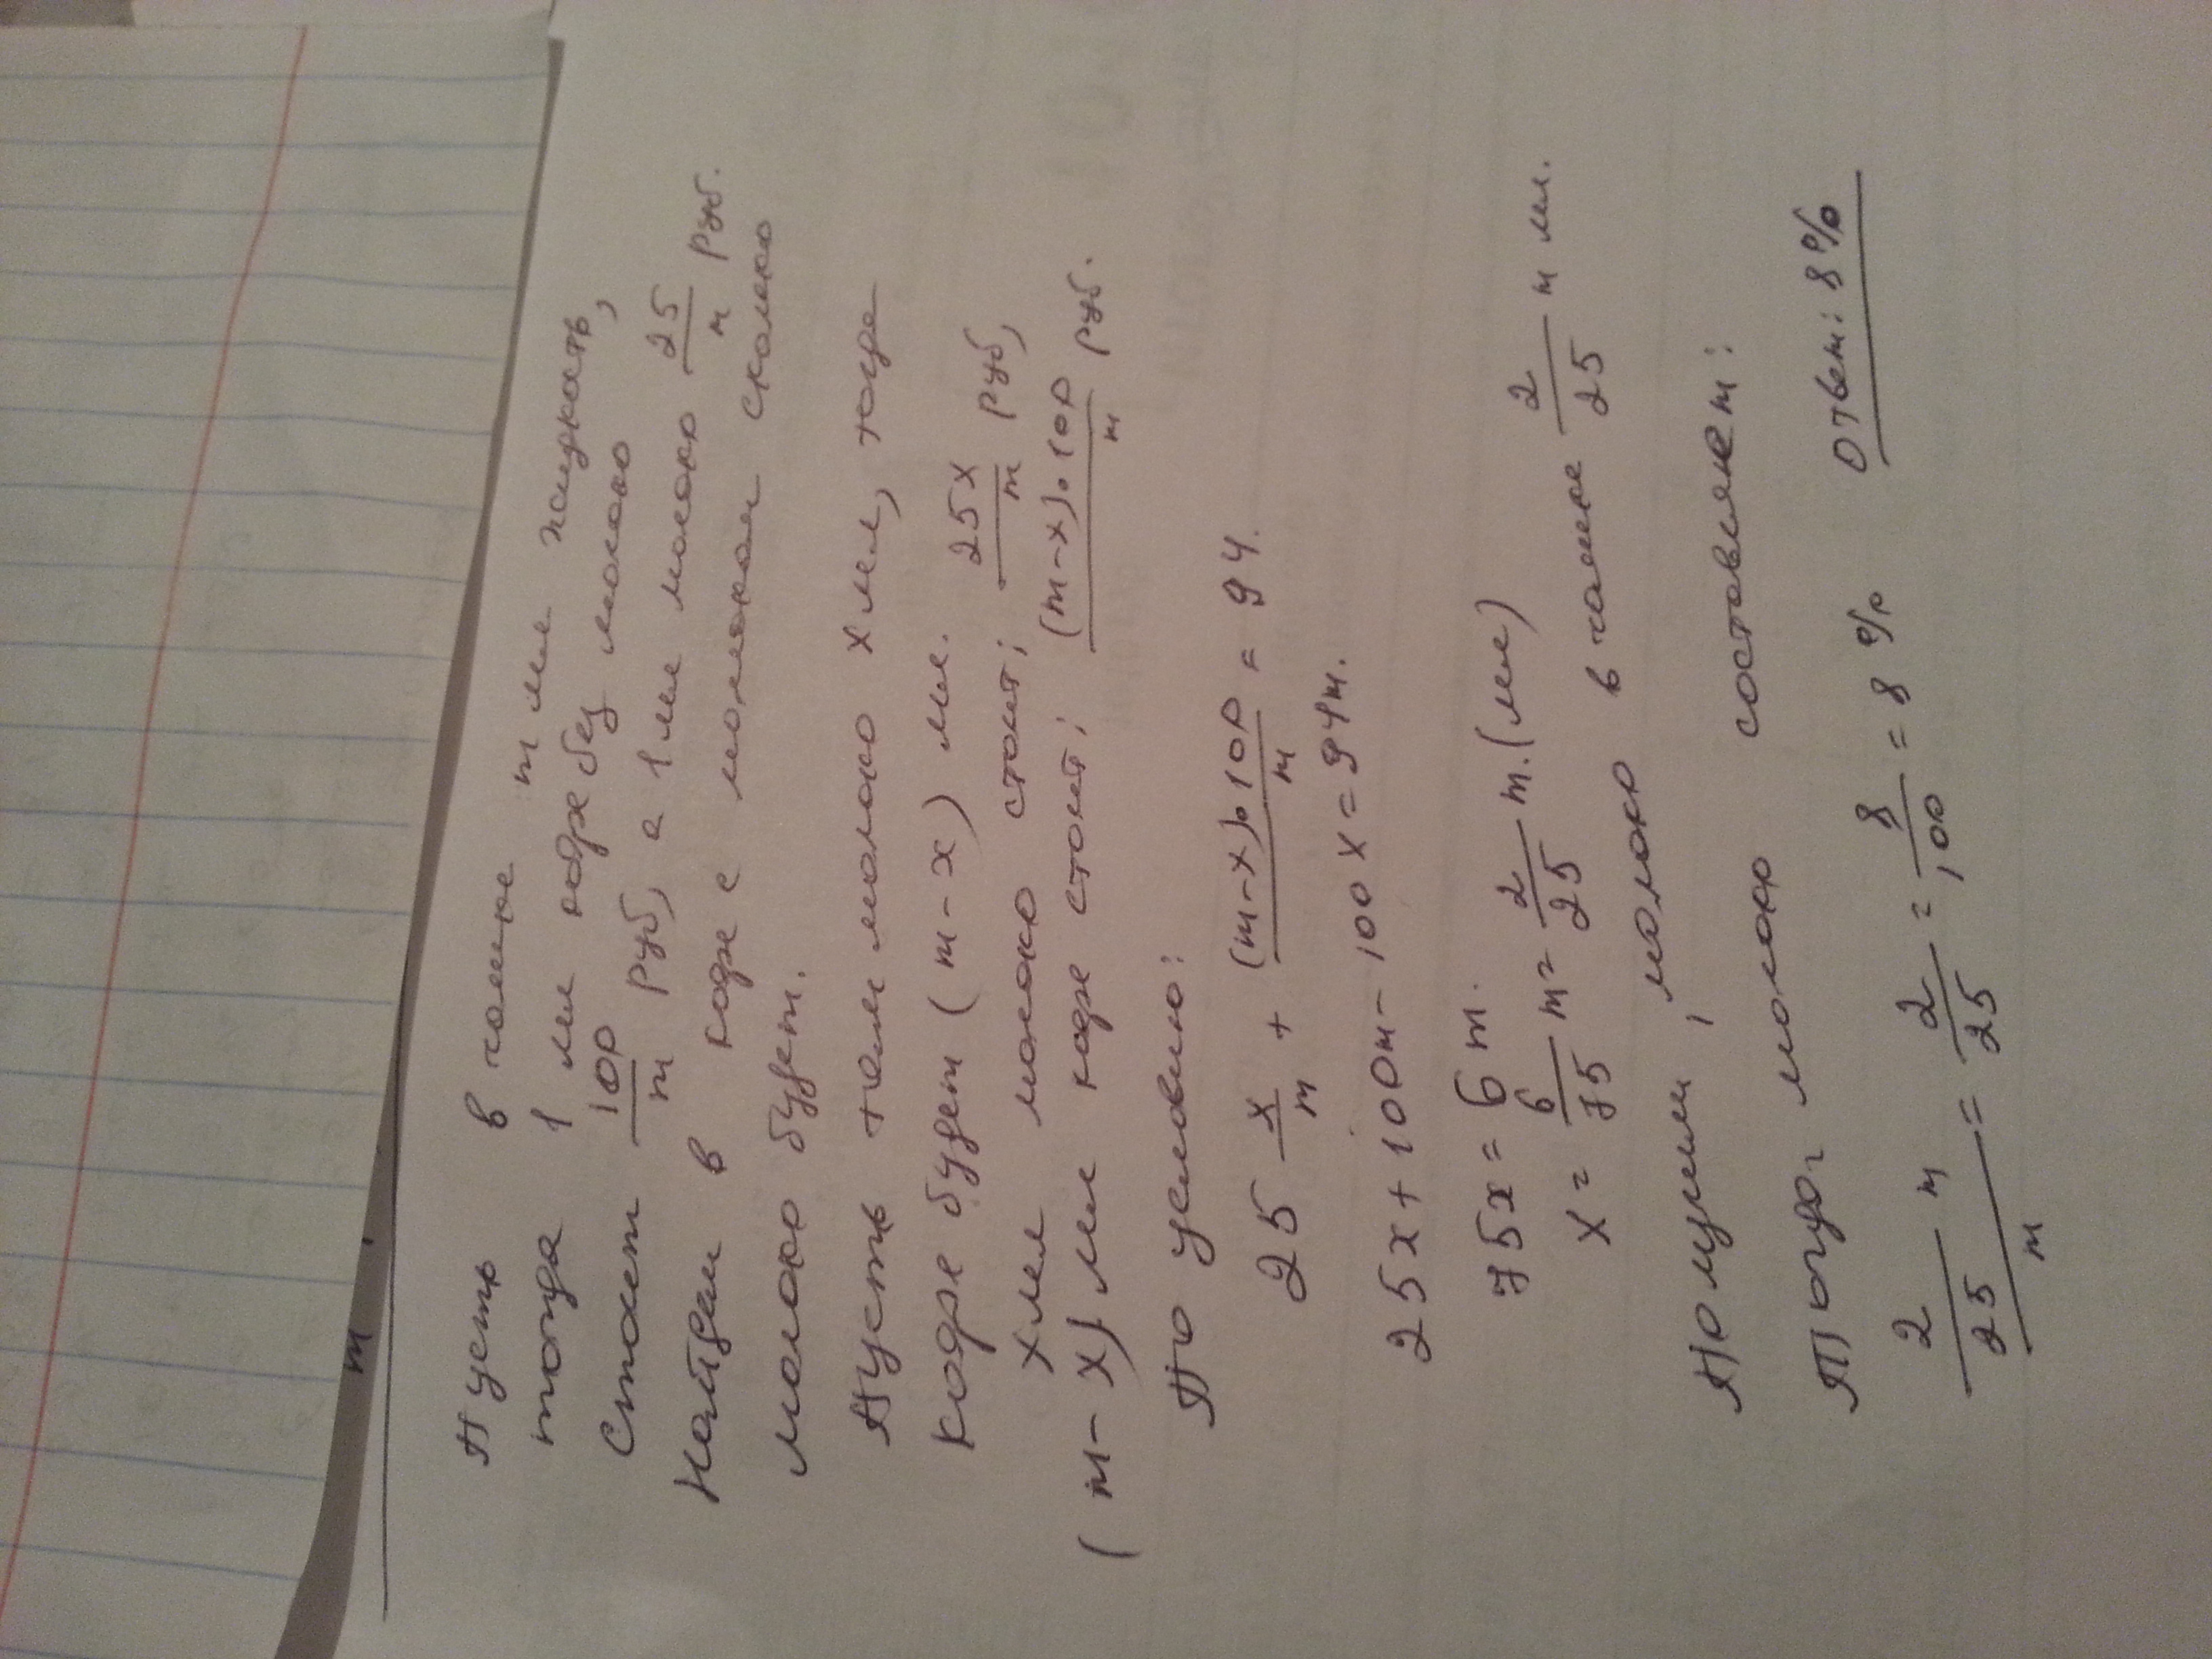 Пусть в чашке m мл жидкость,
тогда 1 мл кофе без молоко
стоит 100/m руб, а 1 мл молоко 25/m руб.
Найдем в кофе с молоком сколько
молоко будет.
Пусть там молоко x мл, тогда
кофе будет (m-x) мл.
x мл молоко стоит; 25x/m руб,
(m-x) мл кофе стоит; (m-x)·100/m руб.
По условию:
25 x/m + (m-x)·100/m = 94.
25x+100m-100x=94m.
75x=6m.
x=6/75 m=2/25 m.(мл)
Получим, молоко в чашке 2/25 m мл.
Тогда молоко составляет:
2/25 m/m = 2/25 = 8/100 = 8% Ответ: 8%